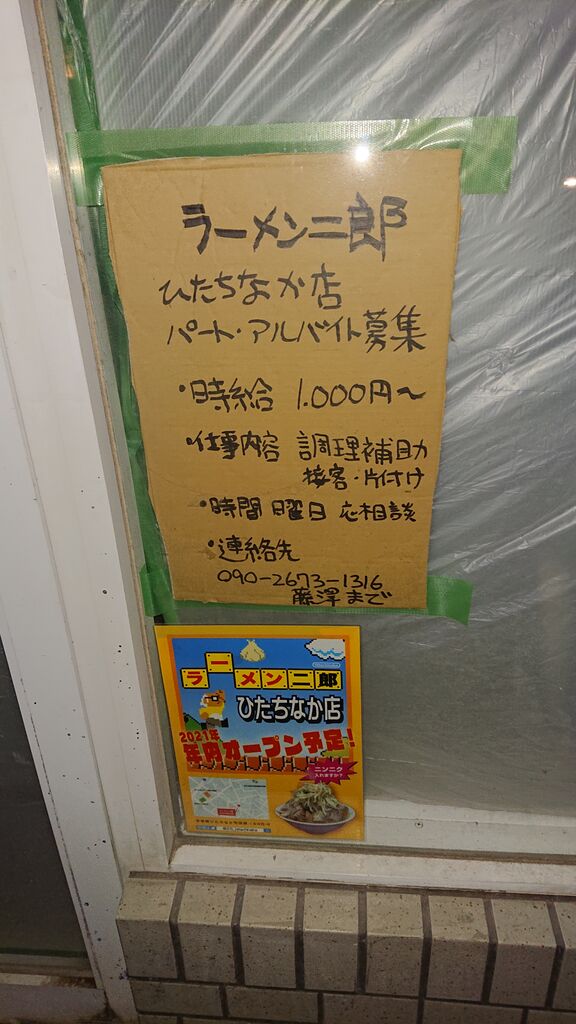 ラーメン二郎
ひたちなか店
パート・アルバイト募集
・時給 1.000円〜
・仕事内容 調理補助
接客・片付け
・時間 曜日 応相談
・連絡先
090-2673-1316
藤澤まで
ラーメン二郎
ひたちなか店
2021年
年内オープン予定!
ニンニク
入れますか?